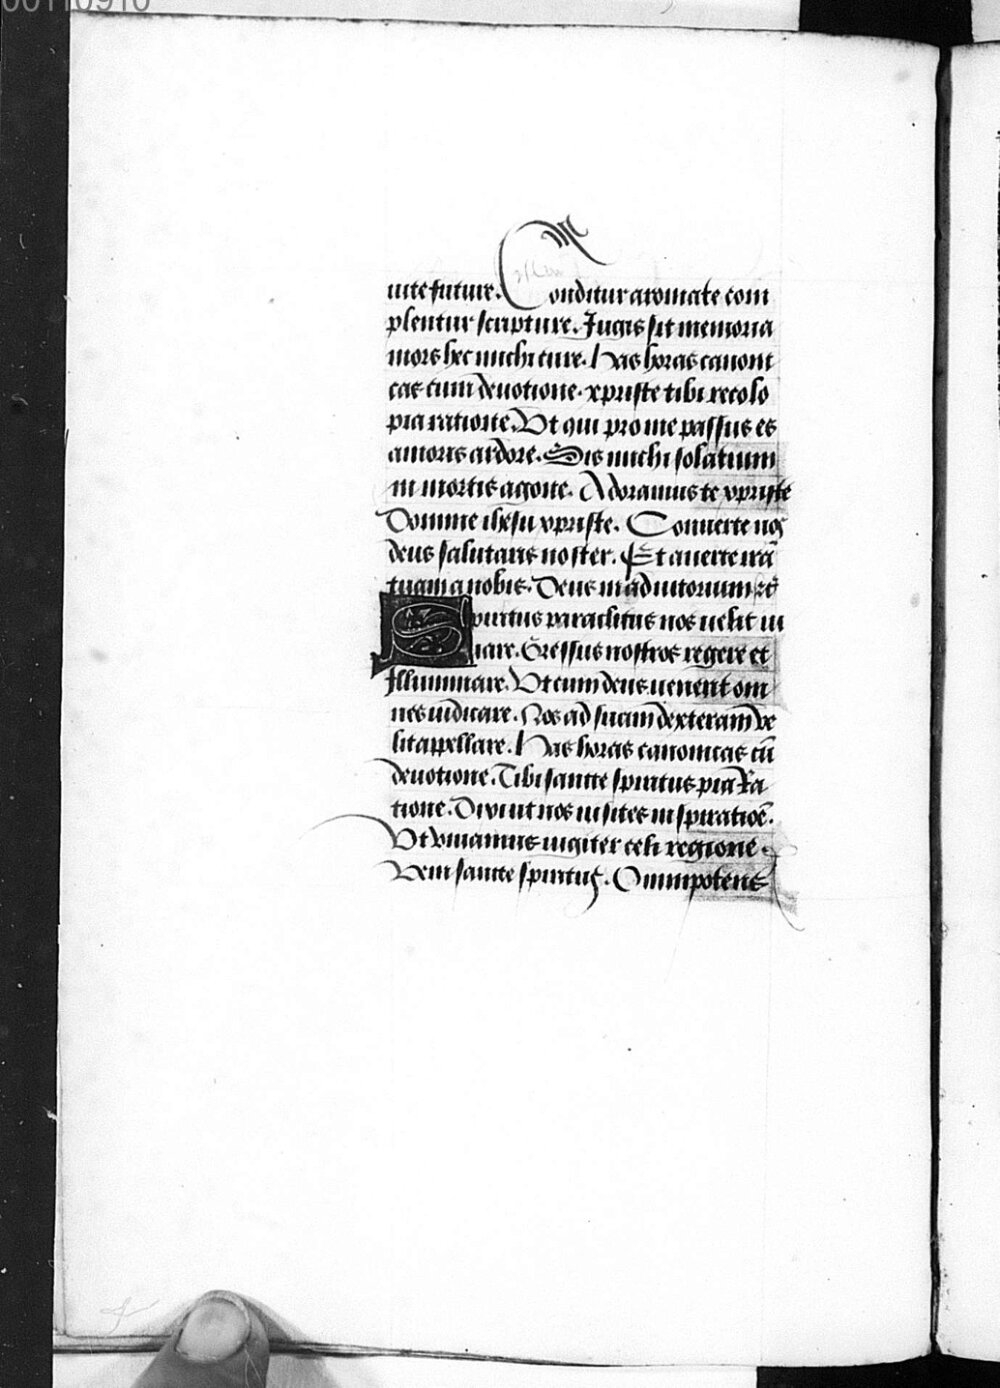 00110910
uite future. Conditur aromate com
plentur scripture. Iugis sit memoria
mors hec michi cure. Has horas canoni
cas cum deuotione. xpriste tibi recolo
pia ratione. Vt qui pro me passus es
amoris ardore. Sis michi solatium
in mortis agone. Adoramus te xpriste
Domine ihesu xpriste. Conuerte nos
deus salutaris noster. Et auerte irā
tuam a nobis. Deus in adiutorium
Spiritus paraclitus nos uelit iu
uare. Gressus nostros regere et
Illuminare. Vt cum deus uenerit om
nes iudicare. Nos ad suam dexteram ve
lit appellare. Has horas canonicas cū
deuotione. Tibi sancte spiritus pia Ra
tione. Dixi ut nos uisites inspiratiōe.
Vt viuamus iugiter celi regione.
Veni sancte spiritus. Omnipotens